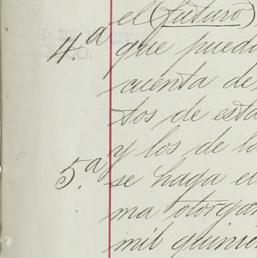 el (futuro)
4.ª que puedo
cuenta de
tos de esta
y los de lo
5.ª se haga el
ma otorgan
mil quinien